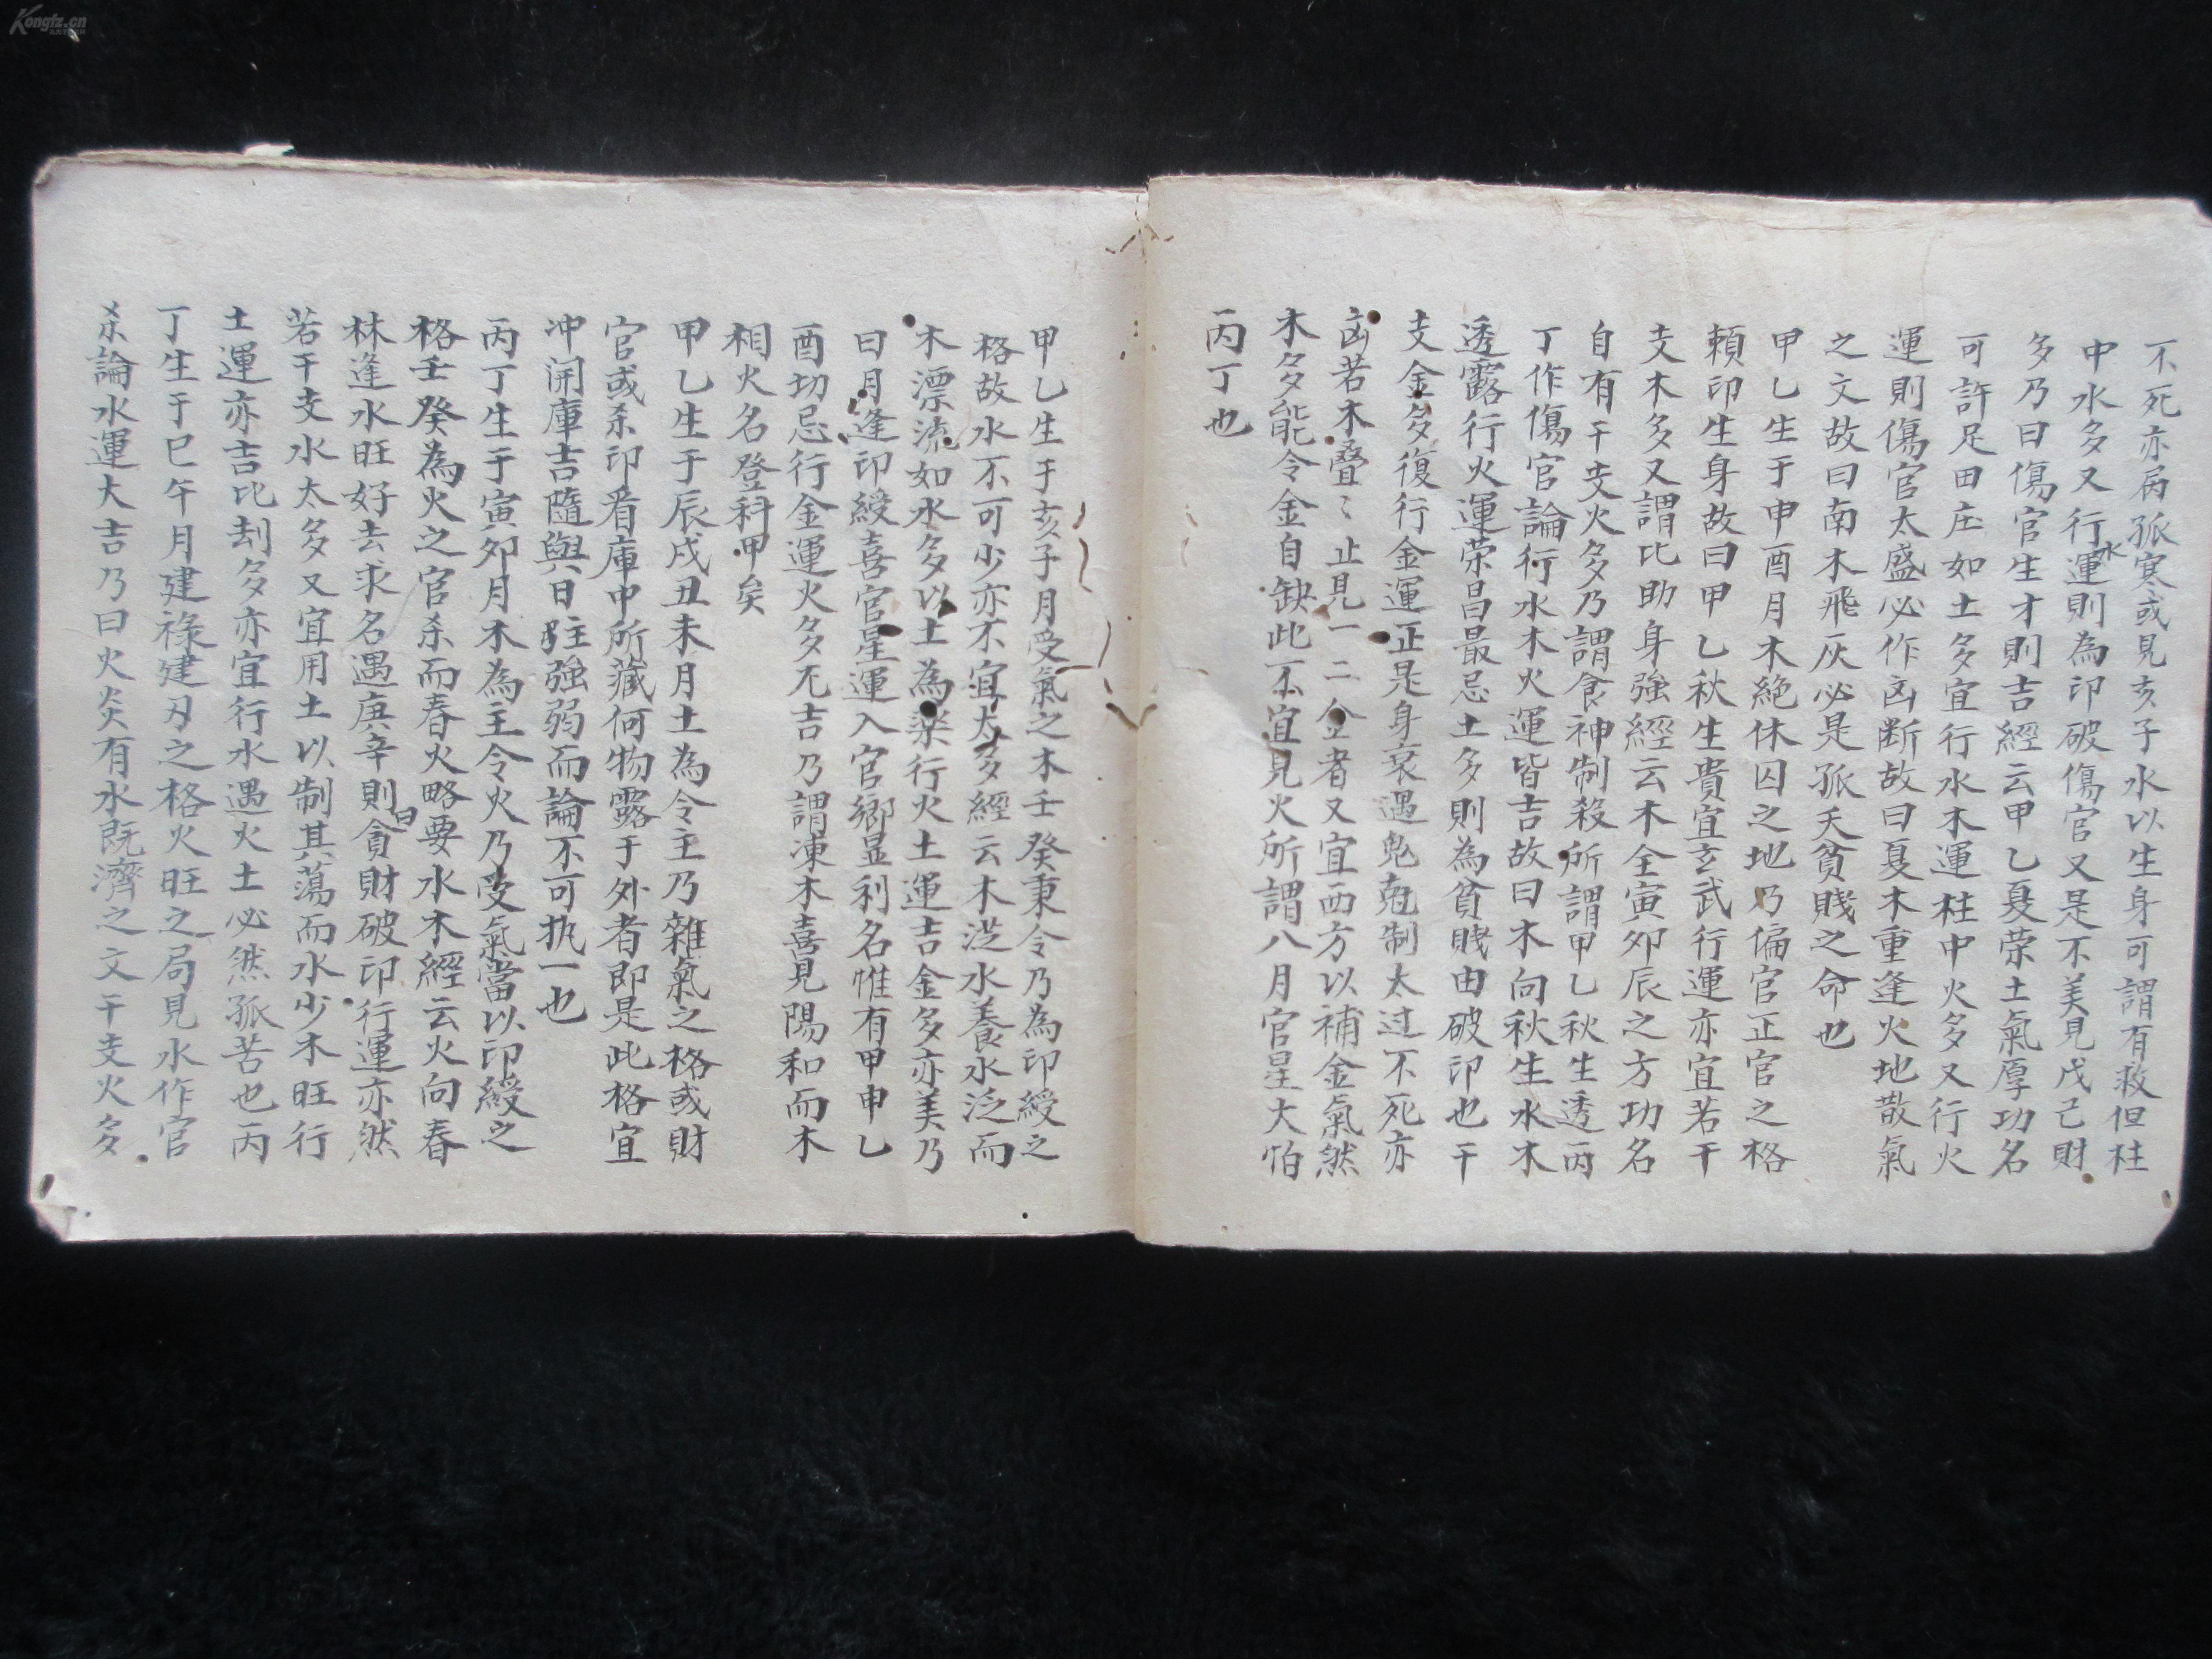 不死亦屙孤寒或見亥子水以生身可謂有救但柱
中水多又行水運則為印破傷官又是不美見戊己財
多乃曰傷官生才則吉經云甲乙夏荣土氣厚功名
可許足田庄如土多宜行水木運柱中火多又行火
運則傷官太盛必作凶断故曰夏木重逢火地散氣
之文故曰南木飛灰必是孤夭貧賤之命也
甲乙生于申酉月木絶休囚之地乃偏官正官之格
頼印生身故曰甲乙秋生貴宜玄武行運亦宜若干
支木多又謂比助身強經云木全寅夘辰之方功名
自有干支火多乃謂食神制殺所謂甲乙秋生透丙
丁作傷官論行水木火運皆吉故曰木向秋生水木
透露行火運荣昌最忌土多則為貧賤由破印也干
支金多復行金運正是身衰遇鬼尅制太过不死亦
凶若木叠〻止見一二金者又宜西方以補金氣然
木多能令金自缺此不宜見火所謂八月官星大怕
丙丁也
甲乙生于亥子月受氣之木壬癸秉令乃為印綬之
格故水不可少亦不宜太多經云木湴水養水泛而
木漂流如水多以土為樂行火土運吉金多亦美乃
曰月逢印綬喜官星運入官鄉显利名惟有甲申乙
酉切忌行金運火多尤吉乃謂凍木喜見陽和而木
相火名登科甲矣
甲乙生于辰戌丑未月土為令主乃雜氣之格或財
官或杀印看庫中所藏何物露于外者即是此格宜
冲開庫吉隨與日主強弱而論不可执一也
丙丁生于寅夘月木為主令火乃受氣當以印綬之
格壬癸為火之官杀而春火略要水木經云火向春
林逢水旺好去求名遇庚辛則曰貪財破印行運亦然
若干支水太多又宜用土以制其蕩而水少木旺行
土運亦吉比刦多亦宜行水遇火土必然孤苦也丙
丁生于巳午月建祿建刃之格火旺之局見水作官
杀論水運大吉乃曰火炎有水既濟之文干支火多
Kongfz.cn